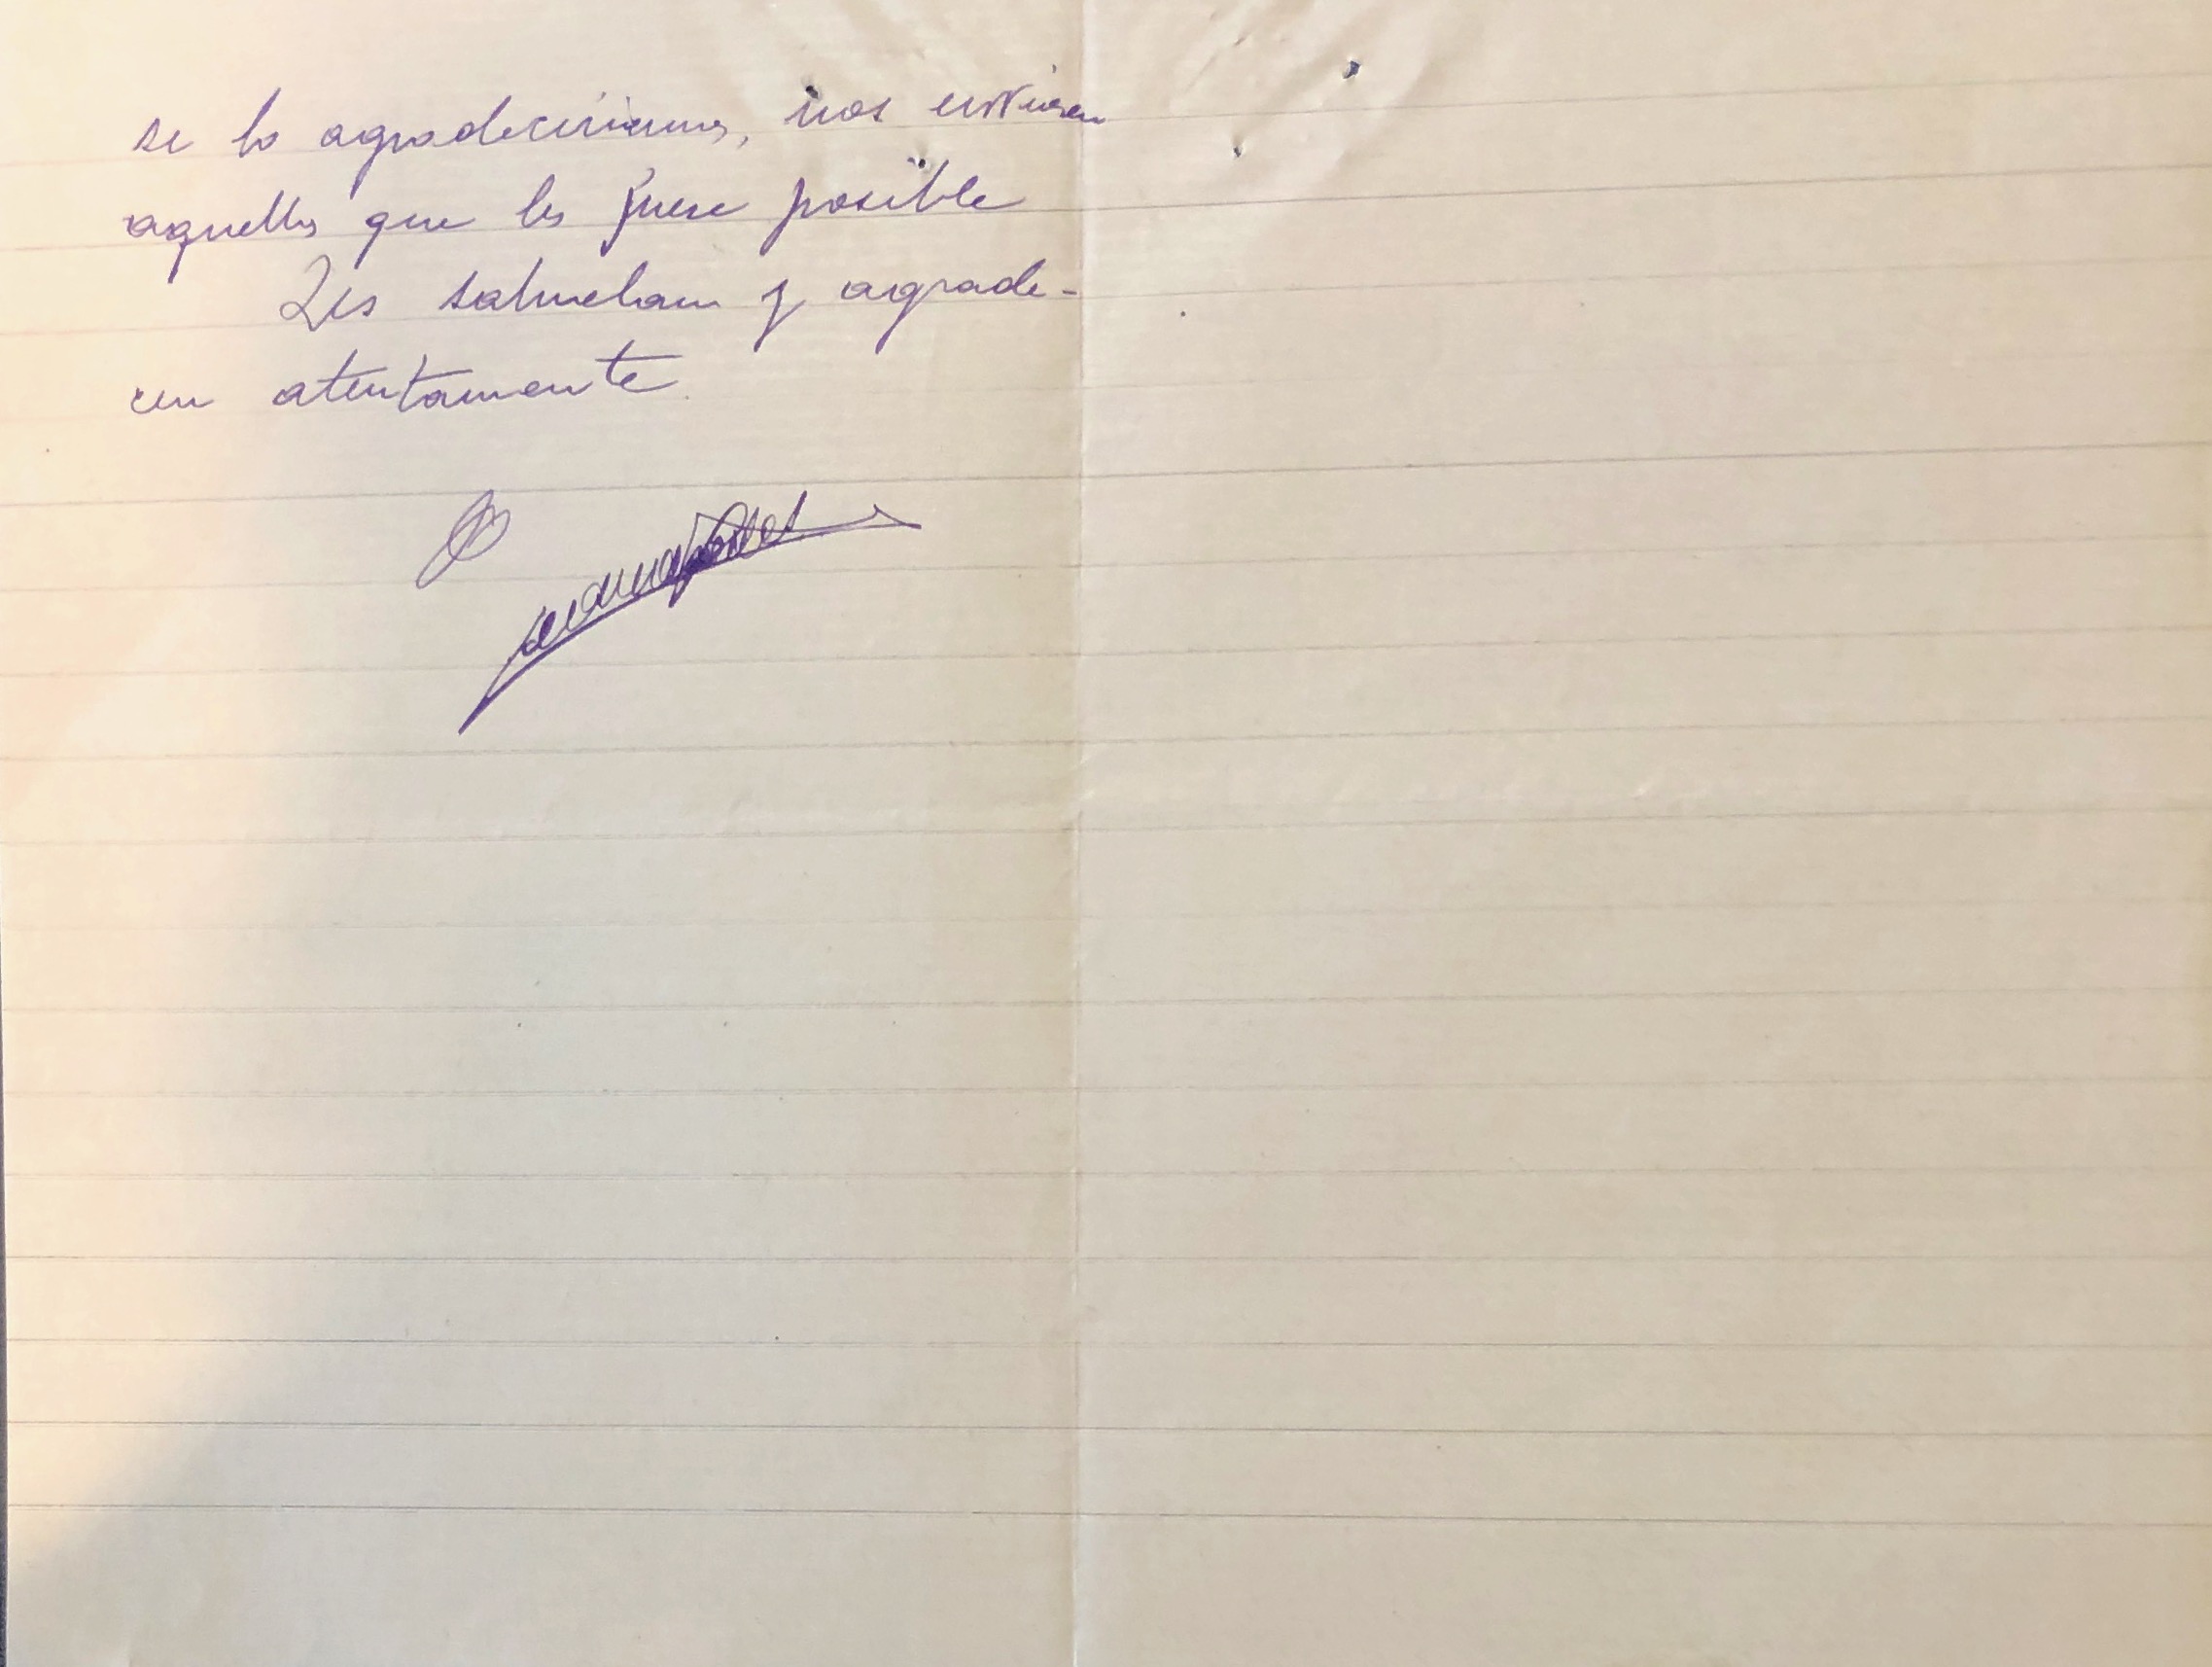 se lo agradeceriamos, nos enviasen
aquellos que les fuese posible
Les saludan y agrade-
cen atentamente